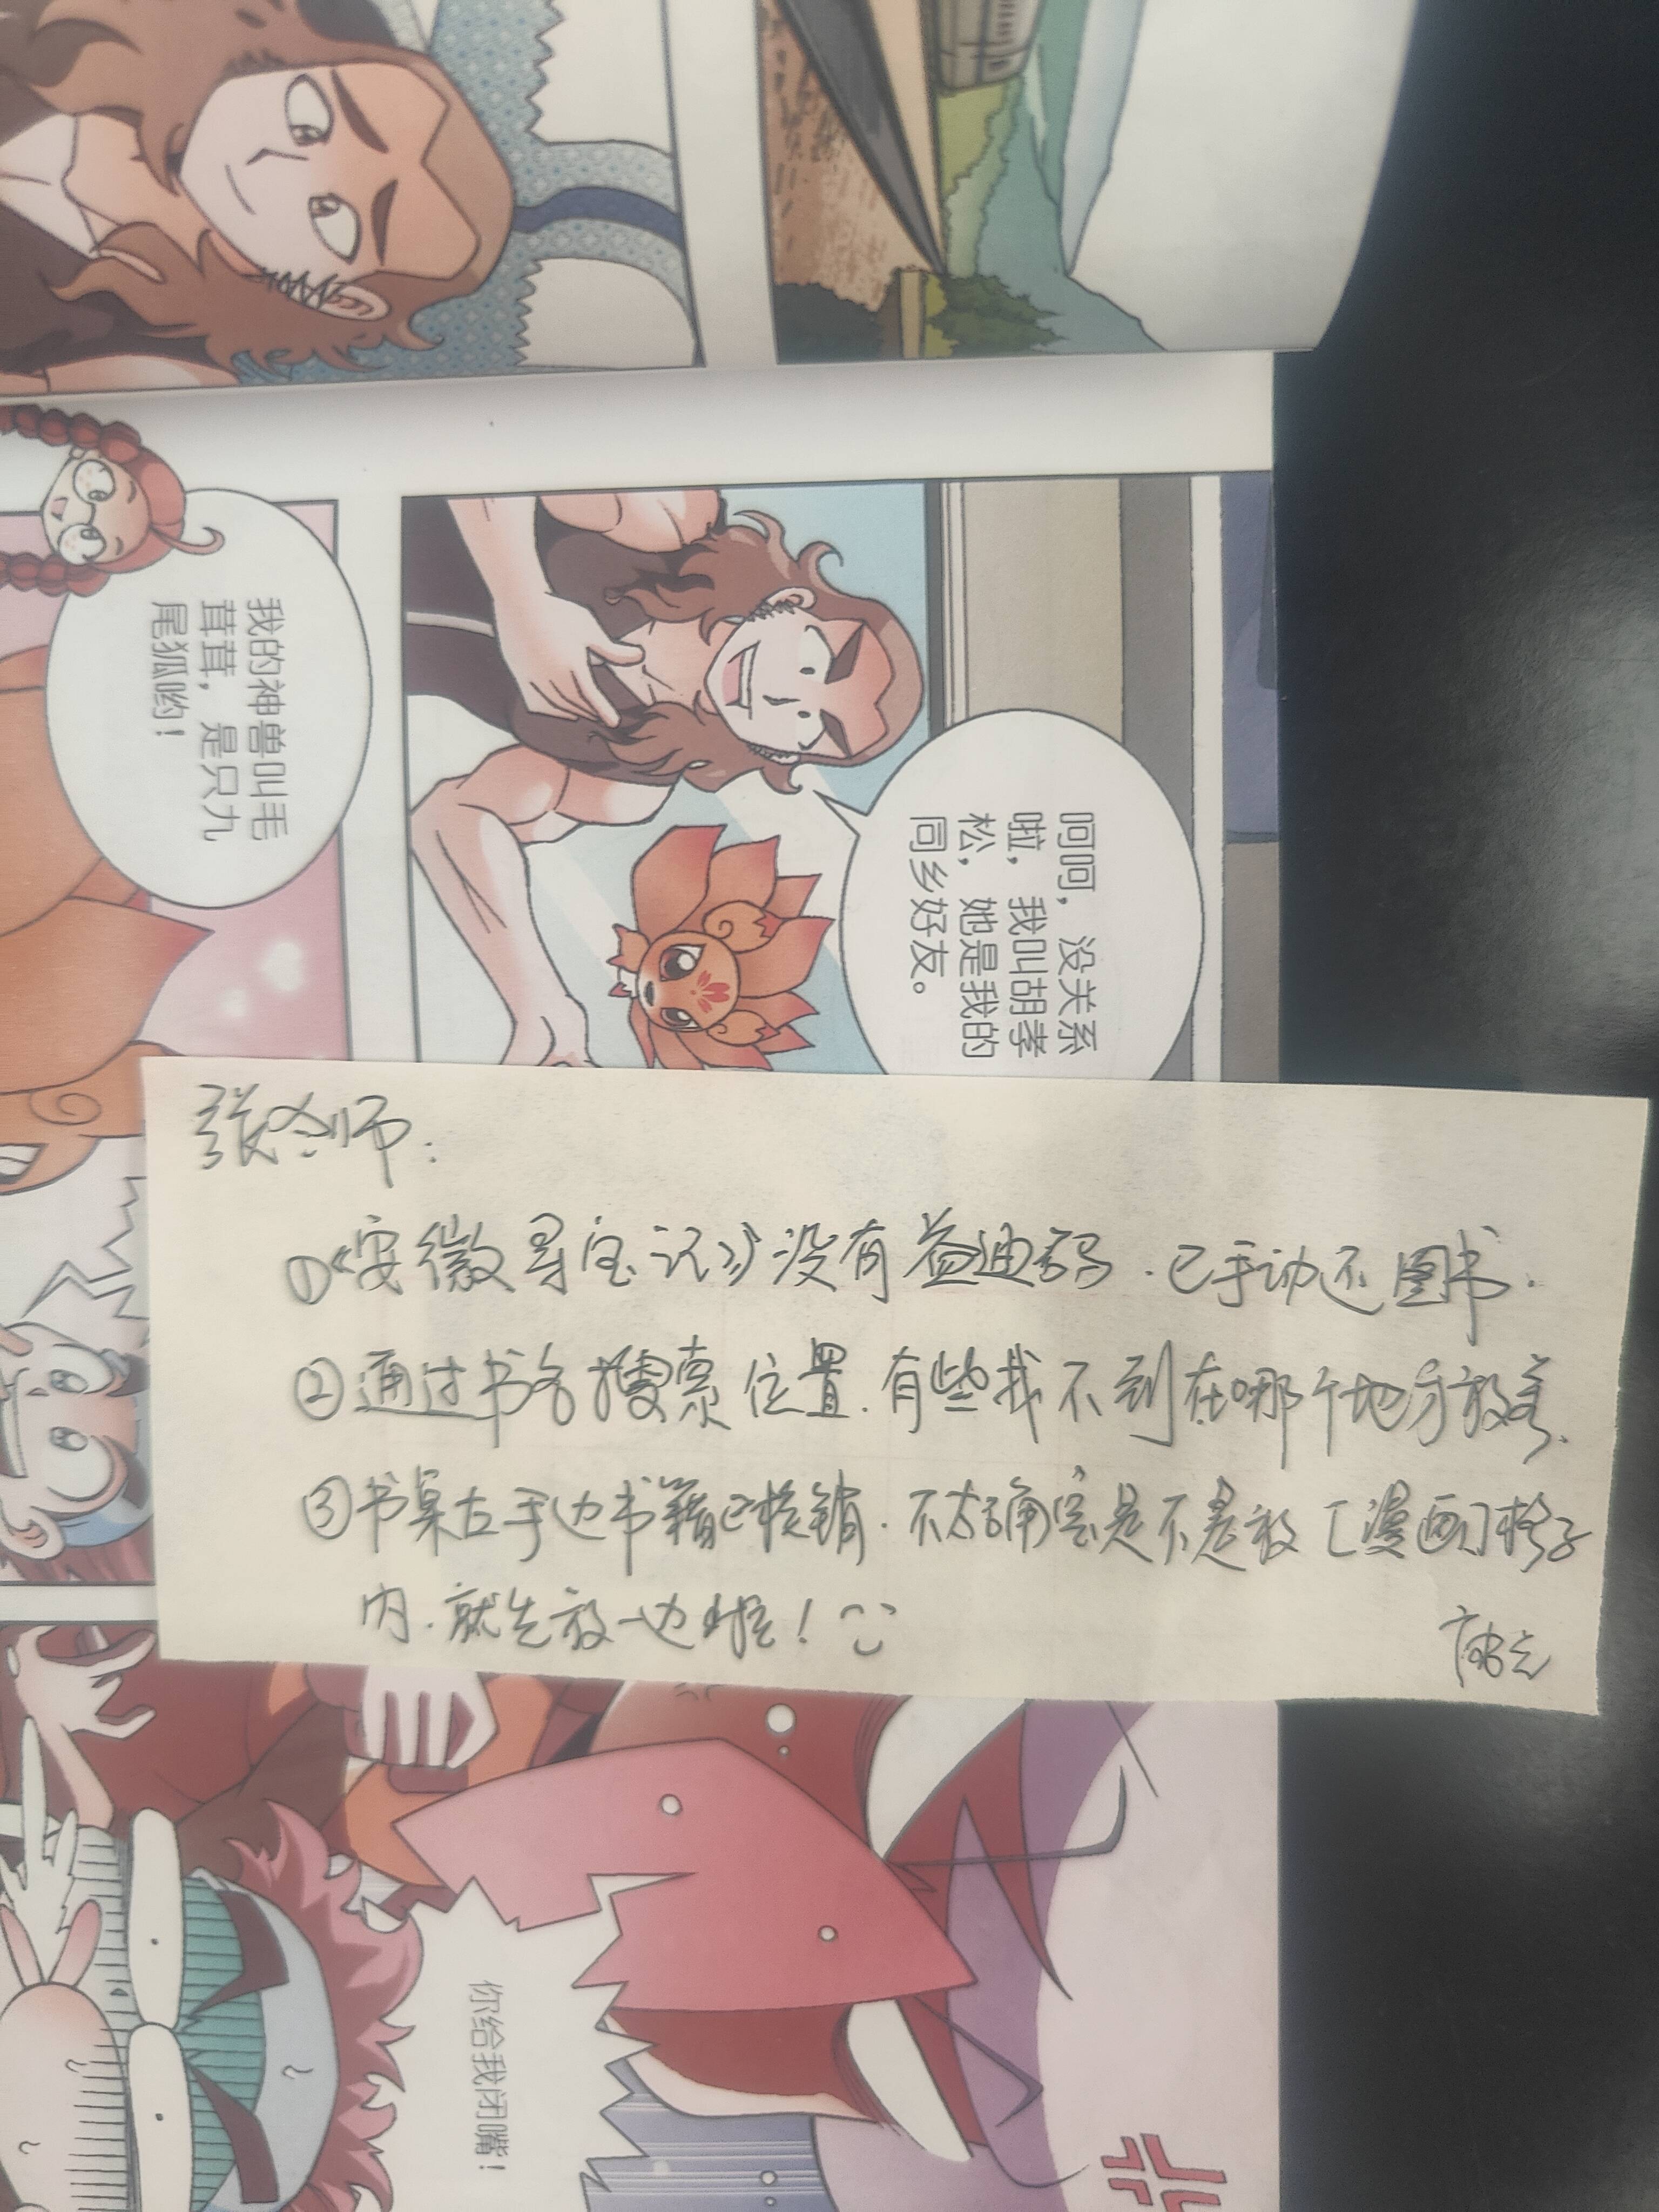 呵呵，没关系
啦，我叫胡孝
松，她是我的
同乡好友。
我的神兽叫毛
茸茸，是只九
尾狐哟！
张老师：
①《安徽寻宝记》没有益迪码.已手动还图书.
②通过书名搜索位置.有些找不到在哪个地方放着.
③书桌左手边书籍已核销.不太确定是不是放[漫画]格子
内.就先放一边啦！
你给我闭嘴！